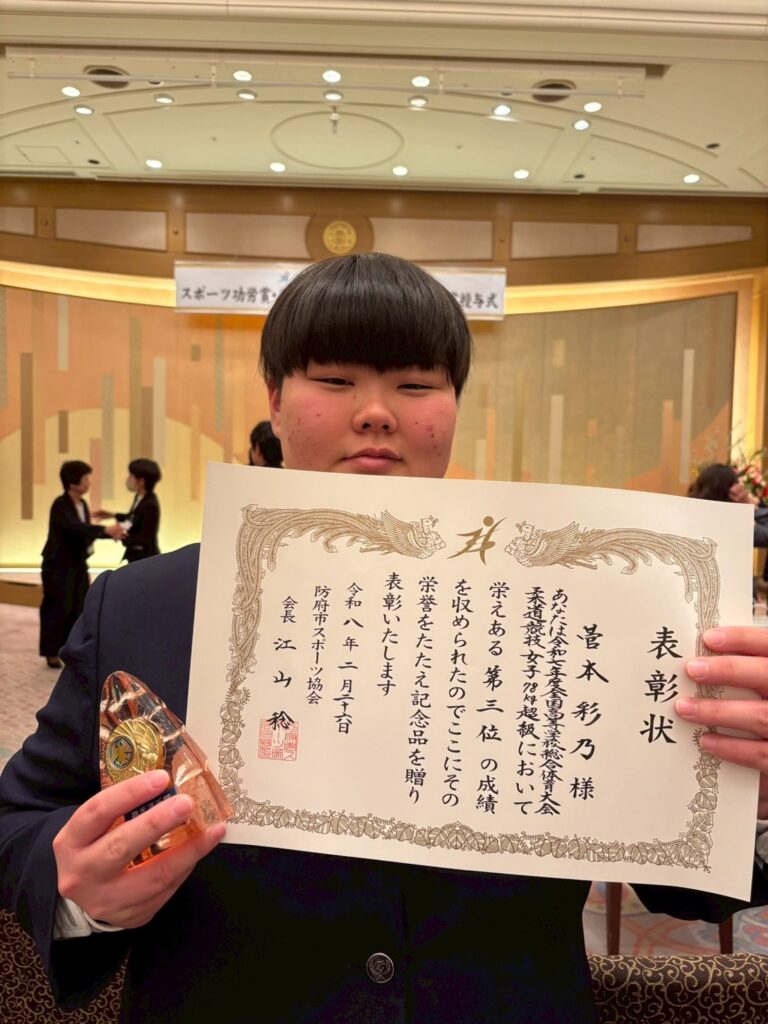 スポーツ功労賞・
授与式
表彰状
菅本彩乃様
あなたは令和七年度全国高等学校総合体育大会
柔道競技女子78kg超級において
栄えある第三位の成績
を収められたのでここにその
栄誉をたたえ記念品を贈り
表彰いたします
令和八年二月二十六日
防府市スポーツ協会
会長 江山稔